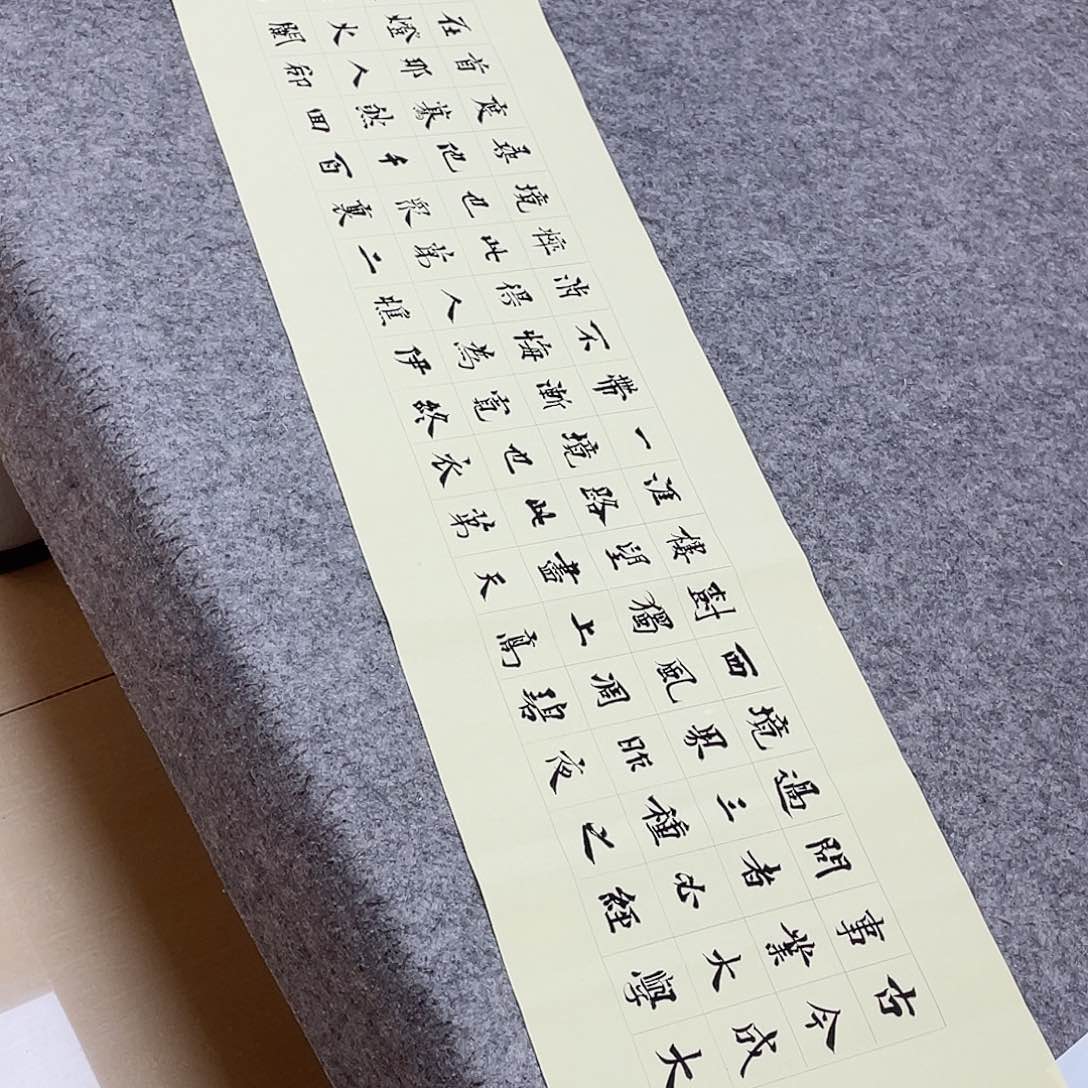 古今成大
事業大學
問者必經
過三種之
境界昨夜
西風凋碧
樹獨上高
樓望盡天
涯路此第
一境也衣
帶漸寬終
不悔為伊
消得人憔
悴此第二
境也眾裏
尋他千百
度驀然回
首那人卻
在燈火闌